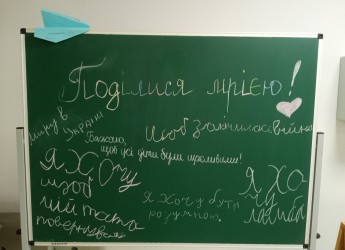 Поділися мрією!
миру в
Україні
Щоб закінчилась війна
Бажаю,
щоб усі діти були щасливими!
Я ХОЧУ
щоб
мій тато
повернувся
Я хочу бути
розумною.
Я ХО
ЧУ